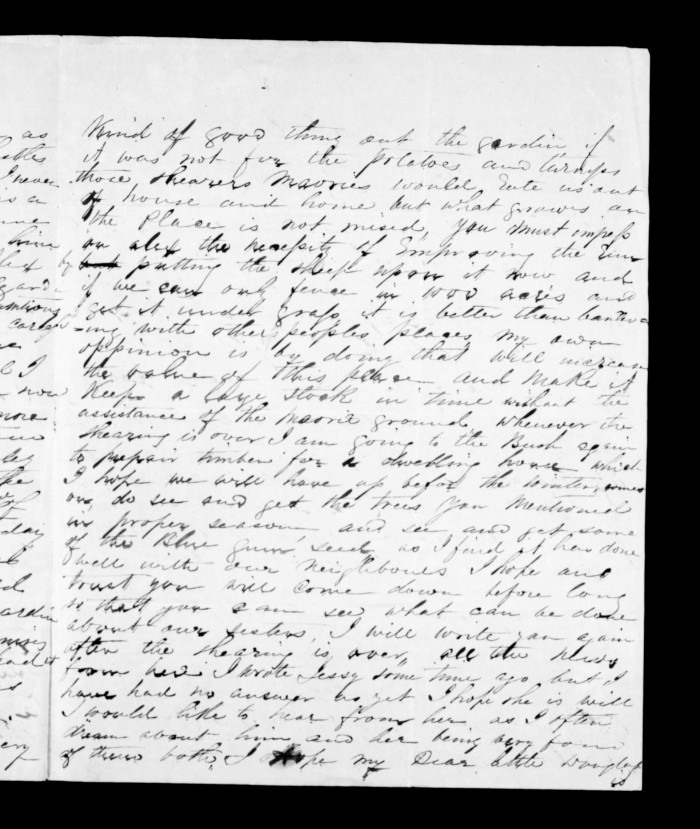 Kind of good thing out the gardin if
it was not for the potatoes and turnips
those shearers Maories would Eate us out
of house and home but what grows on
the Place is not mised, you must impress
on alex the necepity of Improving the Run
by putting the sheep upon it now and
if we can only fence in 1000 acres and
get it under grass it is better than
-ing with other peoples places, my own
oppinion is by doing that will increase
the value of this place and make it
Keep a large stock in time without the
assistance of the Maorie ground, whenever the
shearing is over I am going to the Bush again
to prepair timber for a dwelling house which
I hope we will have up befor the winter comes
on, do see and get the trees you mentioned
in proper season, and see and get some
of the Blue gum seed as I find it has done
well with our neighbours I hope and
trust you will come down before long
so that you can see what can be done
about our sisters, I will write you again
after the shearing is over, all the news
from here I wrote Jessy some time ago but I
have had no answer as yet I hope she is well
I would like to hear from her as I often
dream about him and her being very fond
of them both, I hope my Dear little Douglas
is
as
I never
is a
him
by
now
more
day
gardin